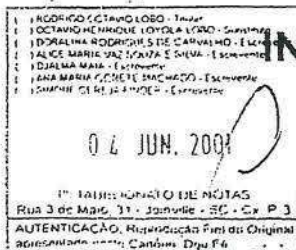 ( ) RODRIGO OCTAVIO LOBO -
( ) OCTAVIO HENRIQUE LOYOLA LOBO -
( ) DORALINA RODRIGUES DE CARVALHO -
( ) ALICE MARIA VAZ SOUZA E SILVA - Escrevente
( ) DJALMA MAIA - Escrevente
( ) ANA MARIA GORETE MACHADO - Escrevente
- Escrevente
IN
0 4 JUN. 2001
1º TABELIONATO DE NOTAS
Rua 3 de Maio, 31 - Joinville - SC - Cx. P. 3
AUTENTICAÇÃO, Reprodução Fiel do Original
apresentado neste Cartório. Dou Fé.